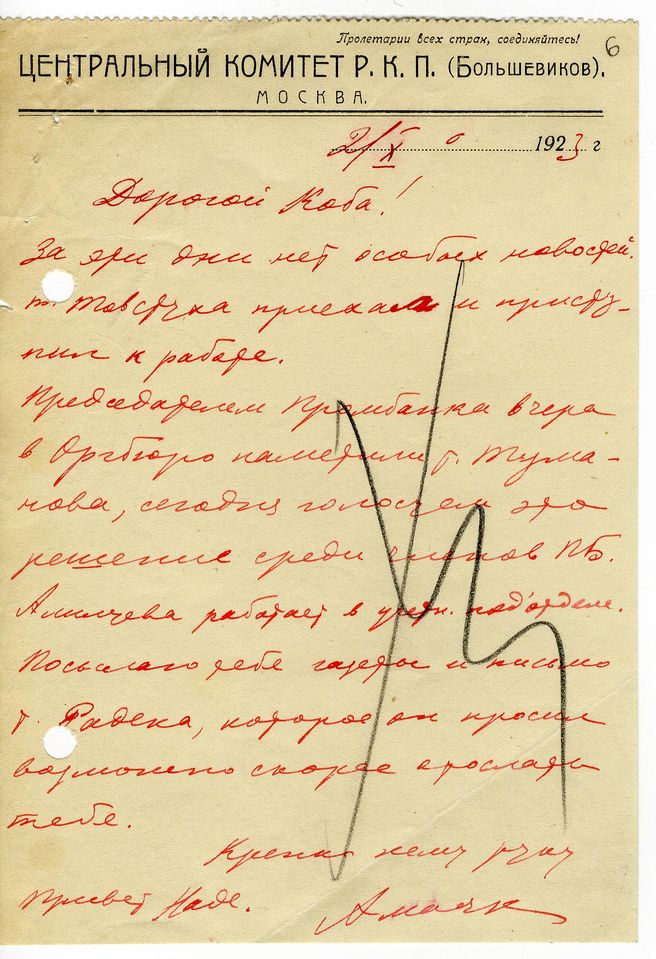 Пролетарии всех стран, соединяйтесь!
6
ЦЕНТРАЛЬНЫЙ КОМИТЕТ Р. К. П. (Большевиков).
МОСКВА.
2/X 1923 г
Дорогой Коба!
За эти дни нет особых новостей.
т. Товстуха приехал и присту-
пил к работе.
Председателем Промбанка вчера
в Оргбюро наметили т. Тума-
нова, сегодня голосуем это
решение среди членов ПБ.
работает в учетн. под'отделе.
Посылаю тебе газеты и письмо
т. Радека, которое он просил
возможно скорее отослать
тебе.
Крепко жму руку
Привет Наде.